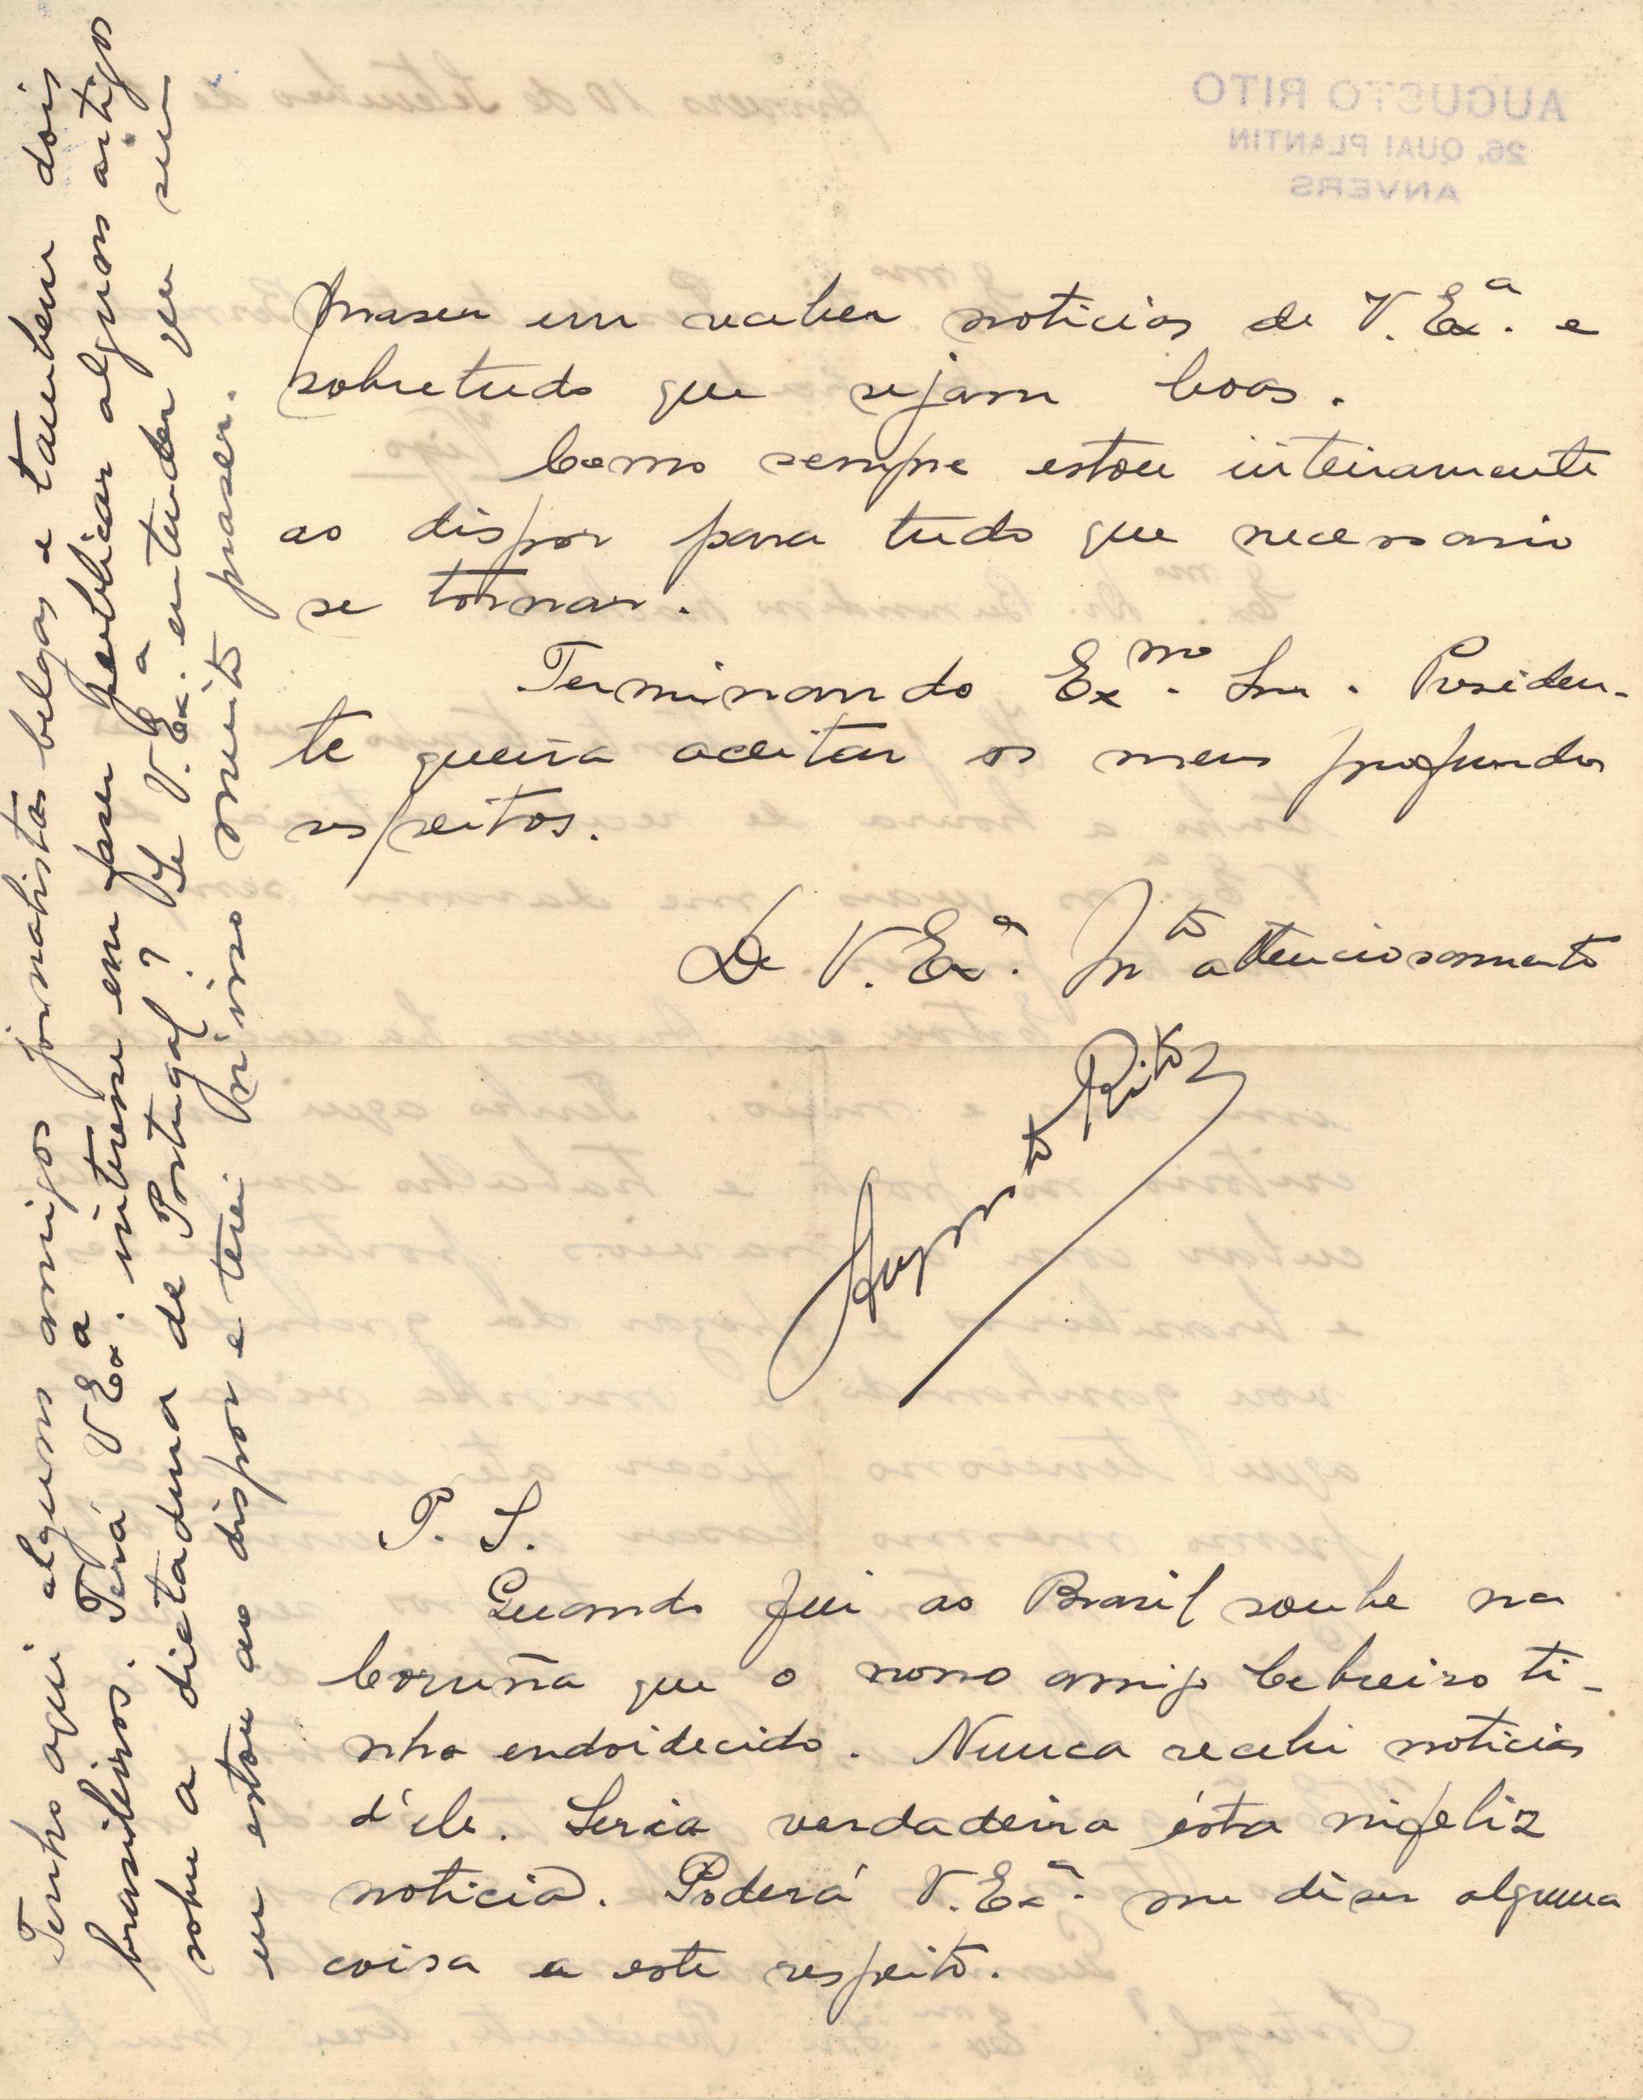 praser em receber noticias de V. Exª. e
sobretudo que sejam boas.
Como sempre estou inteiramente
ao dispor para tudo que necessario
se tornar.
Terminando Exmo. Snr. Presiden-
te queira aceitar os meus profundos
respeitos.
De V. Exª. Mto attenciosamente
Augusto Rito
P. S.
Quando fui ao Brasil soube na
Coruña que o nosso amigo Cebreiro ti-
nha endoidecido. Nunca recebi noticias
d'ele. Seria verdadeira ésta infeliz
noticia. Poderá V. Exª. me diser alguma
coisa a este respeito.
Tenho aqui alguns amigos jornalistas belgas e tambem dois
brasileiros. Terá V Exª. interesse em faser publicar alguns artigos
sobre a dictadura de Portugal? Se V. Exª. entender eu sem
eu estou ao dispor e terei nisso muito praser.
AUGUSTO RITO
26, QUAI PLANTIN
ANVERS
Anvers 10 de Setembro de